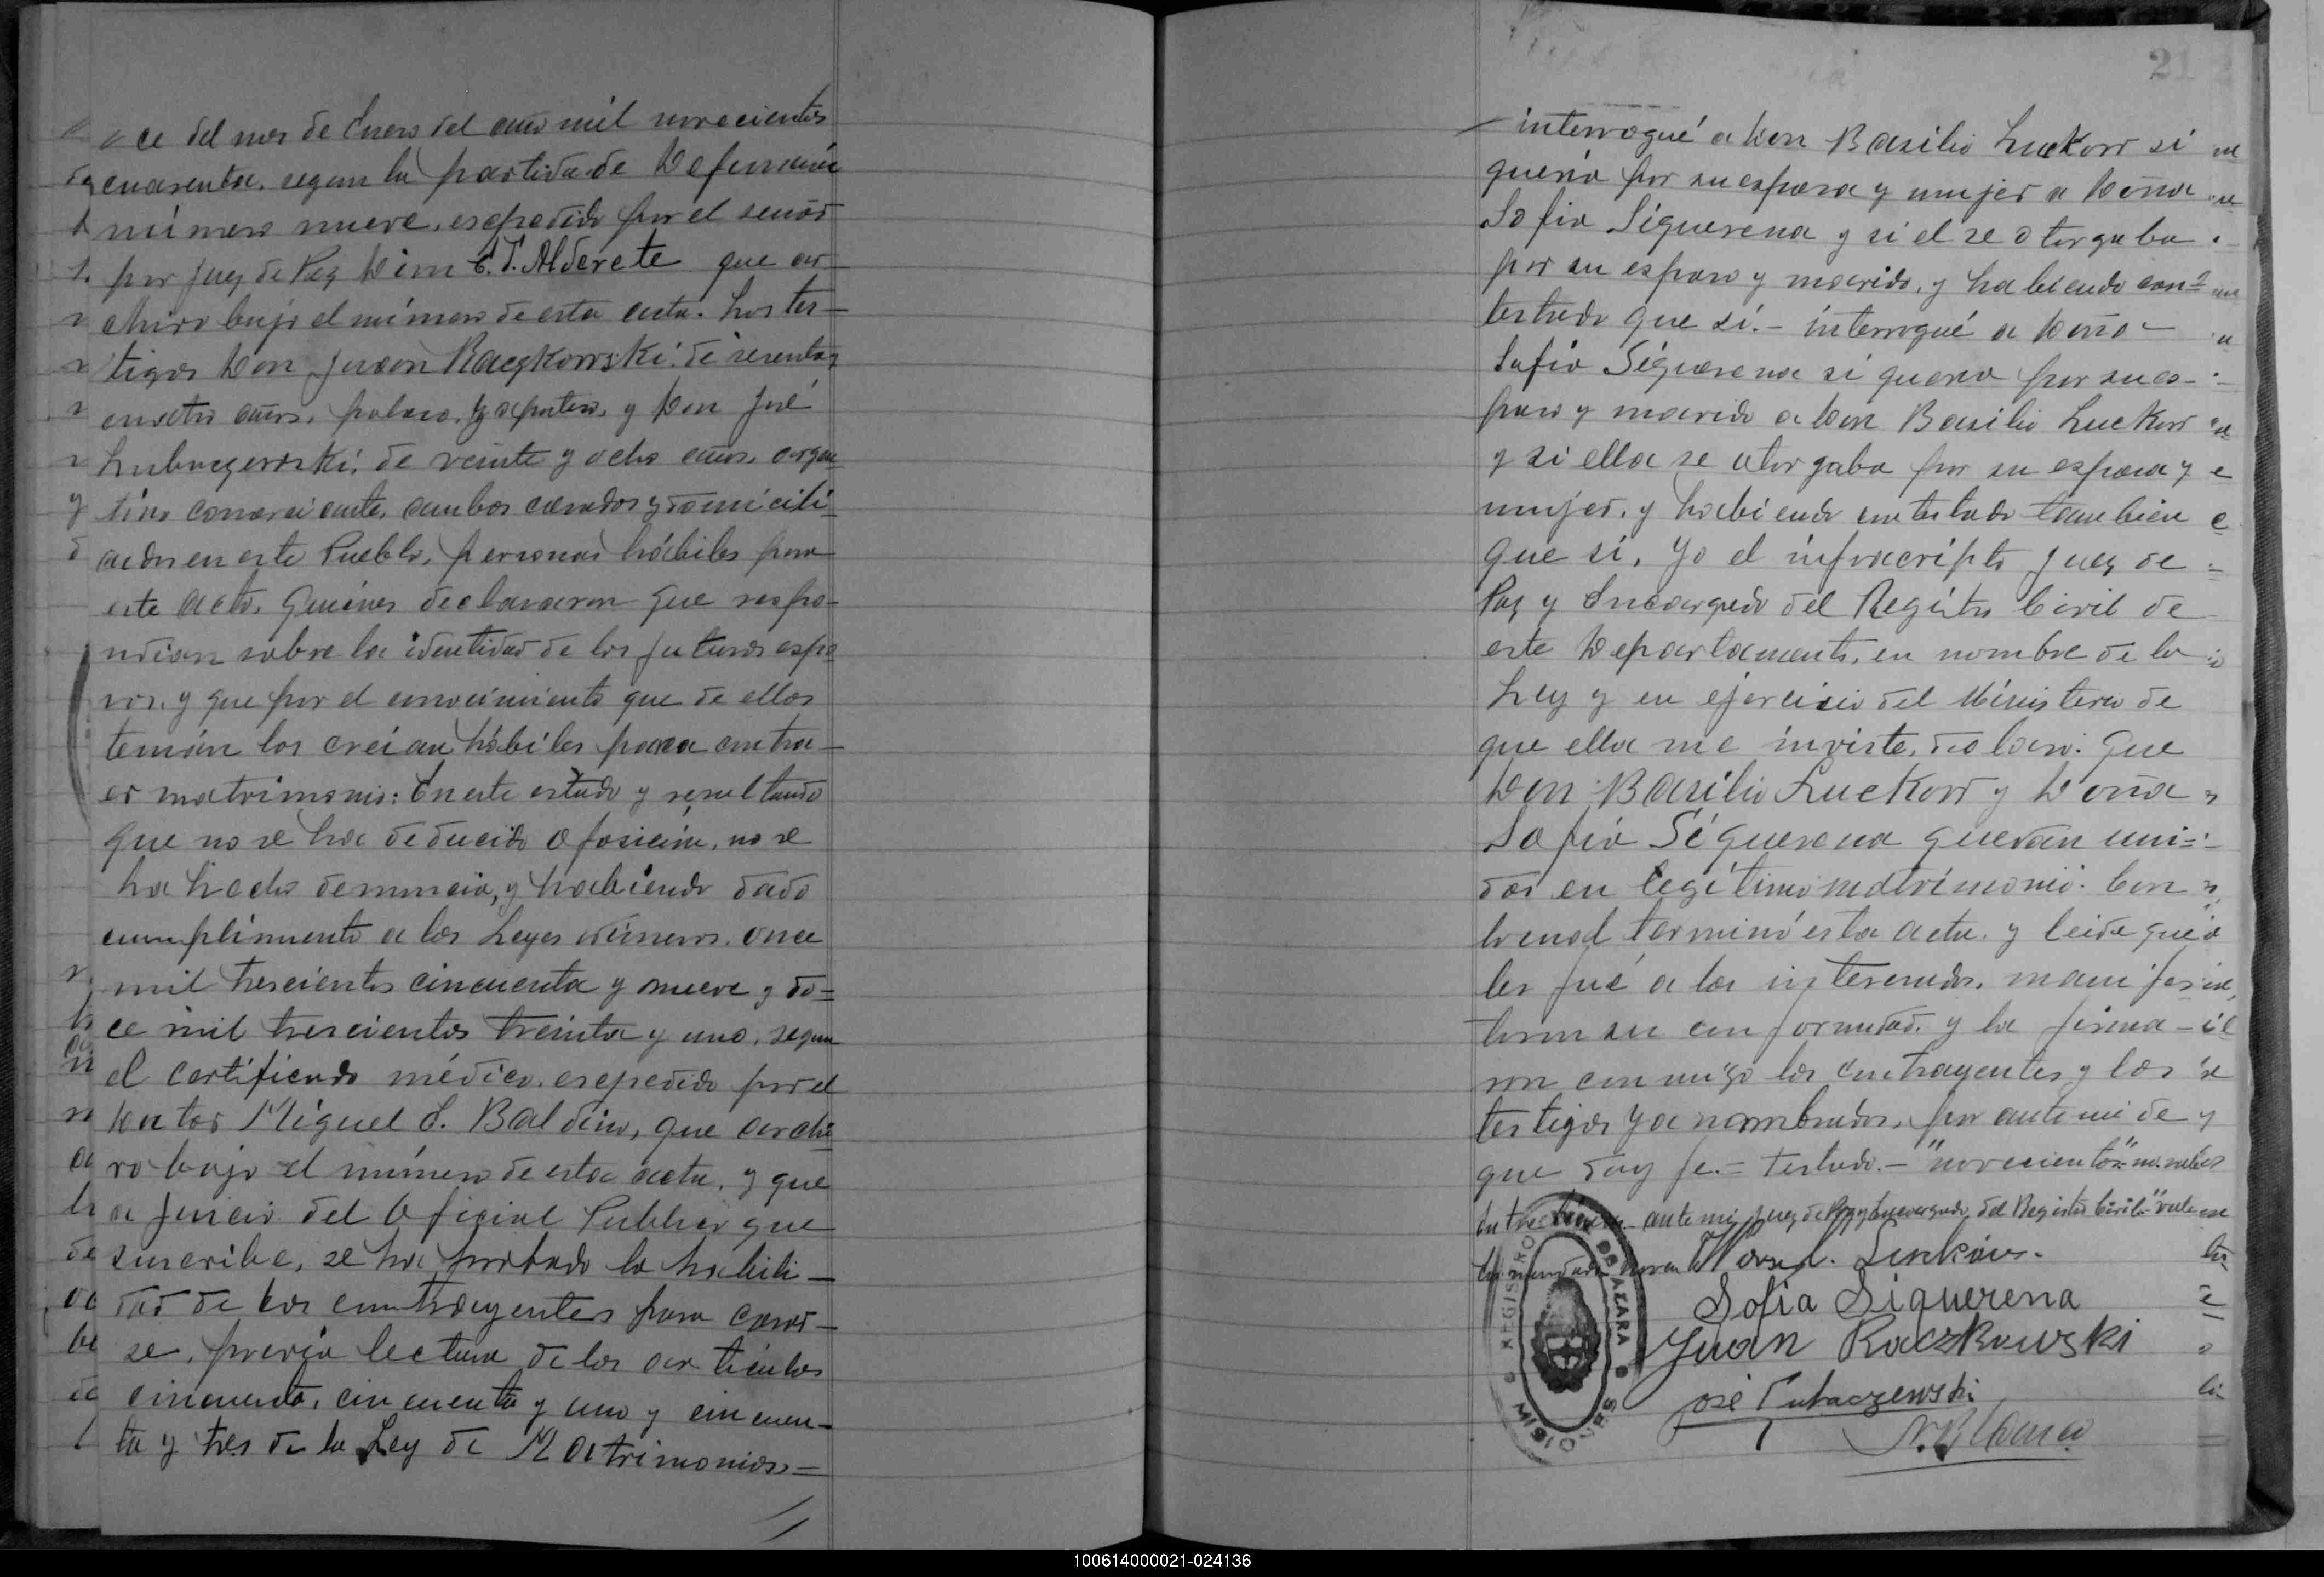 ce del mes de Enero del año mil novecientos
cuarenta, segun la partida de Defunción
número nueve, espedido por el señor
por Juez de Paz Don C. T. Alderete que ar-
chivo bajo el número de esta acta. Los tes-
tigos Don Juan Raczkowski, de sesenta y
cuatro años, polaco, zapatero, y Don José
Lubaczewski, de veinte y ocho años, argen
tino comerciante, ambos casados y domicili-
ados en este Pueblo, personas hábiles para
este acto, quienes declararon que respo-
ndian sobre la identidad de los futuros espo
sos, y que por el conocimiento que de ellos
tenián los creían hábiles para contra-
er matrimonio: En este estado y resultando
que no se ha deducido oposición, no se
ha hecho denuncia, y habiendo dado
cumplimiento a las Leyes números once
mil trescientos cincuenta y nueve y do=
ce mil trescientos treinta y uno, segun
el certificado médico espedido por el
Doctor Miguel S. Baldino, que archi
vo bajo el número de esta acta, y que
a juicio del Oficial Publico que
suscribe, se ha probado la habili-
dad de los contrayentes para casar-
se, previa lectura de los articulos
cincuenta, cincuenta y uno y cincuen-
ta y tres de la Ley de Matrimonios,=
21
interrogué a Don Basilio Luckow si
queria por su esposa y mujer a Doña
Sofia Siquerena y si el se otorgaba
por su esposo y marido, y habiendo con=
testado que sí.- interrogué a Doña
Sofia Siquerena si queria por su es-
poso y marido a Don Basilio Luckow
y si ella se otorgaba por su esposa y
mujer, y habiendo contestado tambien
que sí, Yo el infrascripto Juez de
Paz y Encargado del Registro Civil de
este Departamento, en nombre de la
Ley y en ejercicio del Ministerio de
que ella me inviste, declaro: Que
Don Basilio Luckow y Doña
Sofia Siquerena quedan uni=
dos en legítimo matrimonio. Con
lo cual terminó esta acta, y leida que
les fué a los interesados, manifes
taron su conformidad, y la firma-
ron conmigo los contrayentes y los
testigos ya nombrados, por ante mi de
que doy fe.= Testado.- "novecientos": no vale
Entre lineas- ante mi, Juez de Paz y Encargado del Registro Civil" vale
Enmendado
Sofia Siquerena
Juan Raczkowski
José Lubaczewski
REGISTRO
DE AZARA
MISIONES
100614000021-024136